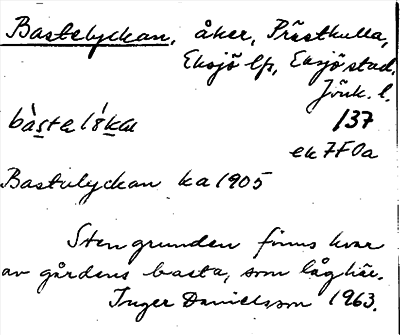 Bastelyckan, åker, Prästkulla,
Eksjö lfs, Eksjö stad.
Jönk. l.
bàsta lỳkan 137
ek 7F0a
Bastulyckan ka 1905
Stengrunden finns kvar
av gårdens basta, som låg här.
Inger Danielsson 1963.